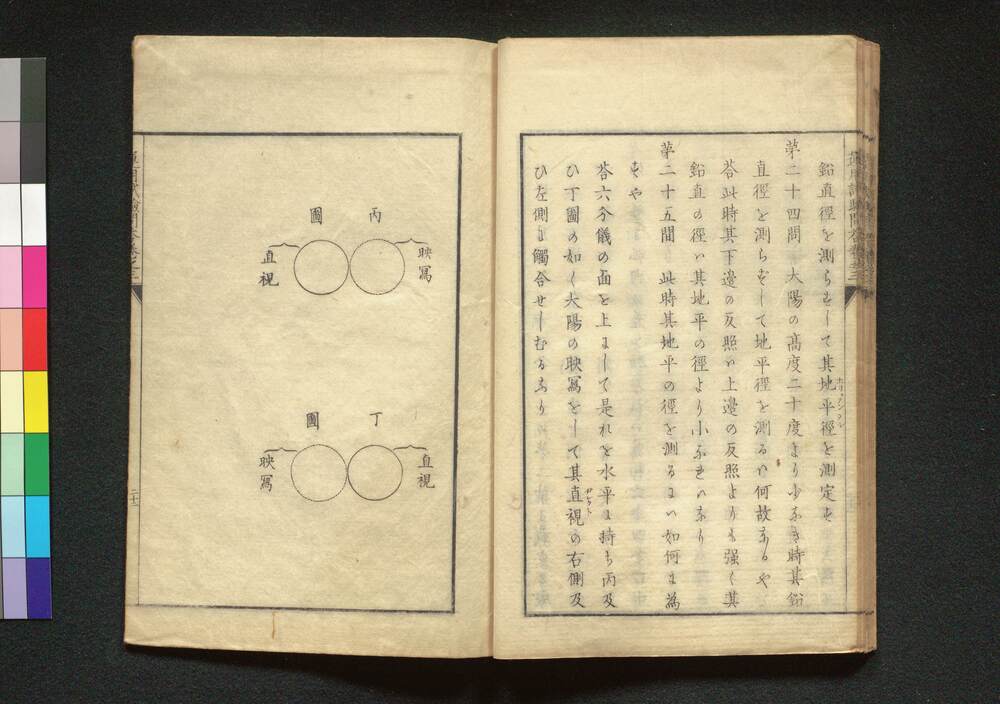 鉛直徑を測らずして其地平徑を測定す
第二十四問　太陽の高度二十度より少なき時其鉛
直徑を測らずして地平徑を測るハ何故なるや
答此時其下邊の反照ハ上邊の反照よりも强く其
鉛直の徑ハ其地平の徑より小なれハなり
第二十五問　此時其地平の徑を測るにハ如何に為
すや
答六分儀の面を上にして是れを水平に持ち丙及
ひ丁圖の如く太陽の映冩をして其直視の右側及
ひ左側に觸合せしむるなり
丙圖
映冩
直視
丁圖
直視
映冩